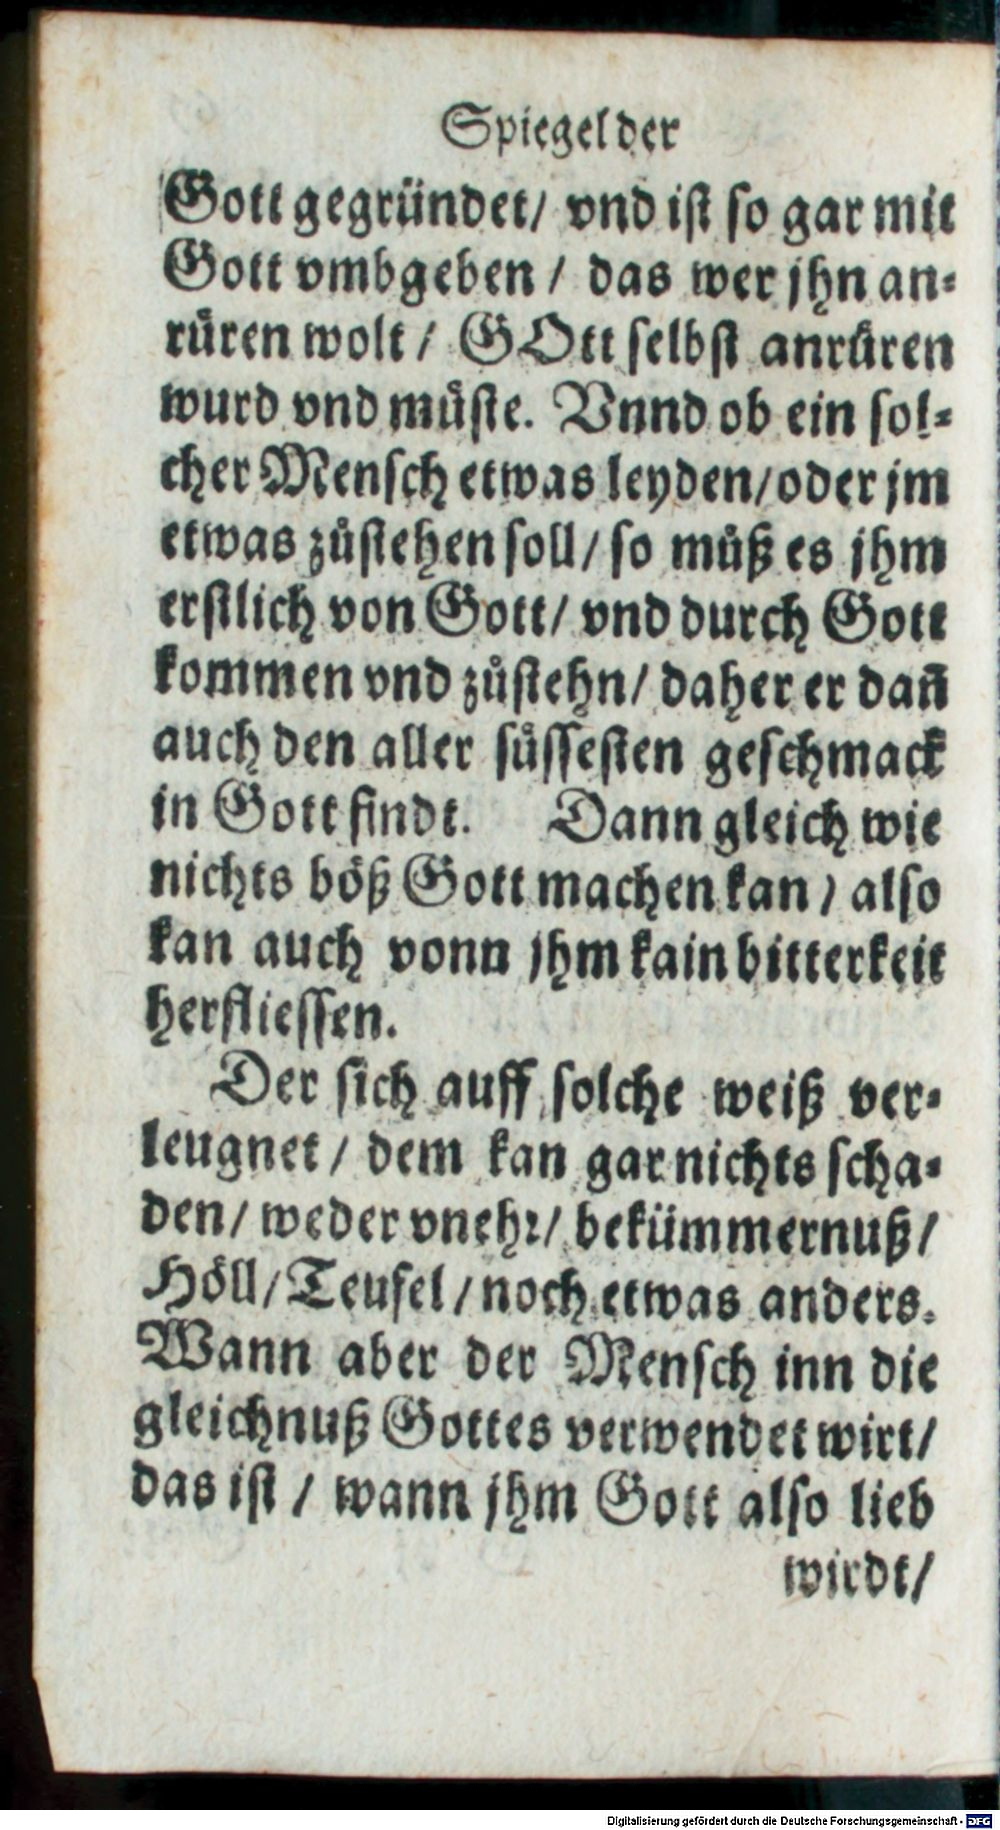 Spiegel der
Gott gegründet/ vnd ist so gar mit
Gott vmbgeben / das wer jhn an-
rüren wolt / GOtt selbst anrüren
wurd vnd müste. Vnnd ob ein sol-
cher Mensch etwas leyden/oder jm
etwas zůstehen soll/ so můß es jhm
erstlich von Gott/ vnd durch Gott
kommen vnd zůstehn/ daher er dañ
auch den aller süssesten geschmack
in Gott findt. Dann gleich wie
nichts böß Gott machen kan / also
kan auch vonn jhm kain bitterkeit
herfliessen.
Der sich auff solche weiß ver-
leugnet / dem kan gar nichts scha-
den/ weder vnehr/ bekümmernuß/
Höll/ Teufel / noch etwas anders.
Wann aber der Mensch inn die
gleichnuß Gottes verwendet wirt/
das ist / wann jhm Gott also lieb
wirdt/
Digitalisierung gefördert durch die Deutsche Forschungsgemeinschaft - DFG